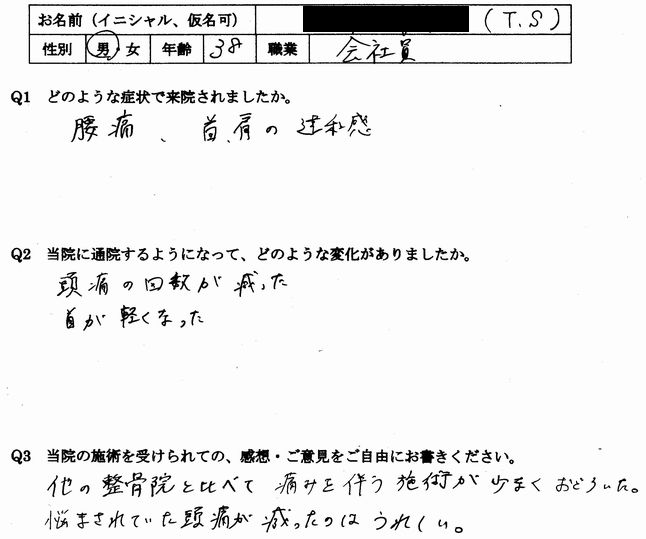 お名前（イニシャル、仮名可） (T.S)
性別 男・女 年齢 38 職業 会社員
Q1 どのような症状で来院されましたか。
腰痛、首、肩の違和感
Q2 当院に通院するようになって、どのような変化がありましたか。
頭痛の回数が減った
首が軽くなった
Q3 当院の施術を受けられての、感想・ご意見をご自由にお書きください。
他の整骨院と比べて痛みを伴う施術が少なくおどろいた。
悩まされていた頭痛が減ったのはうれしい。